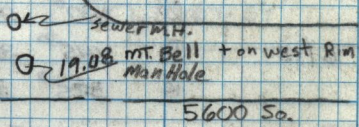 sewer M.H.
19.08 MT. Bell + on west Rim
Man Hole
5600 So.